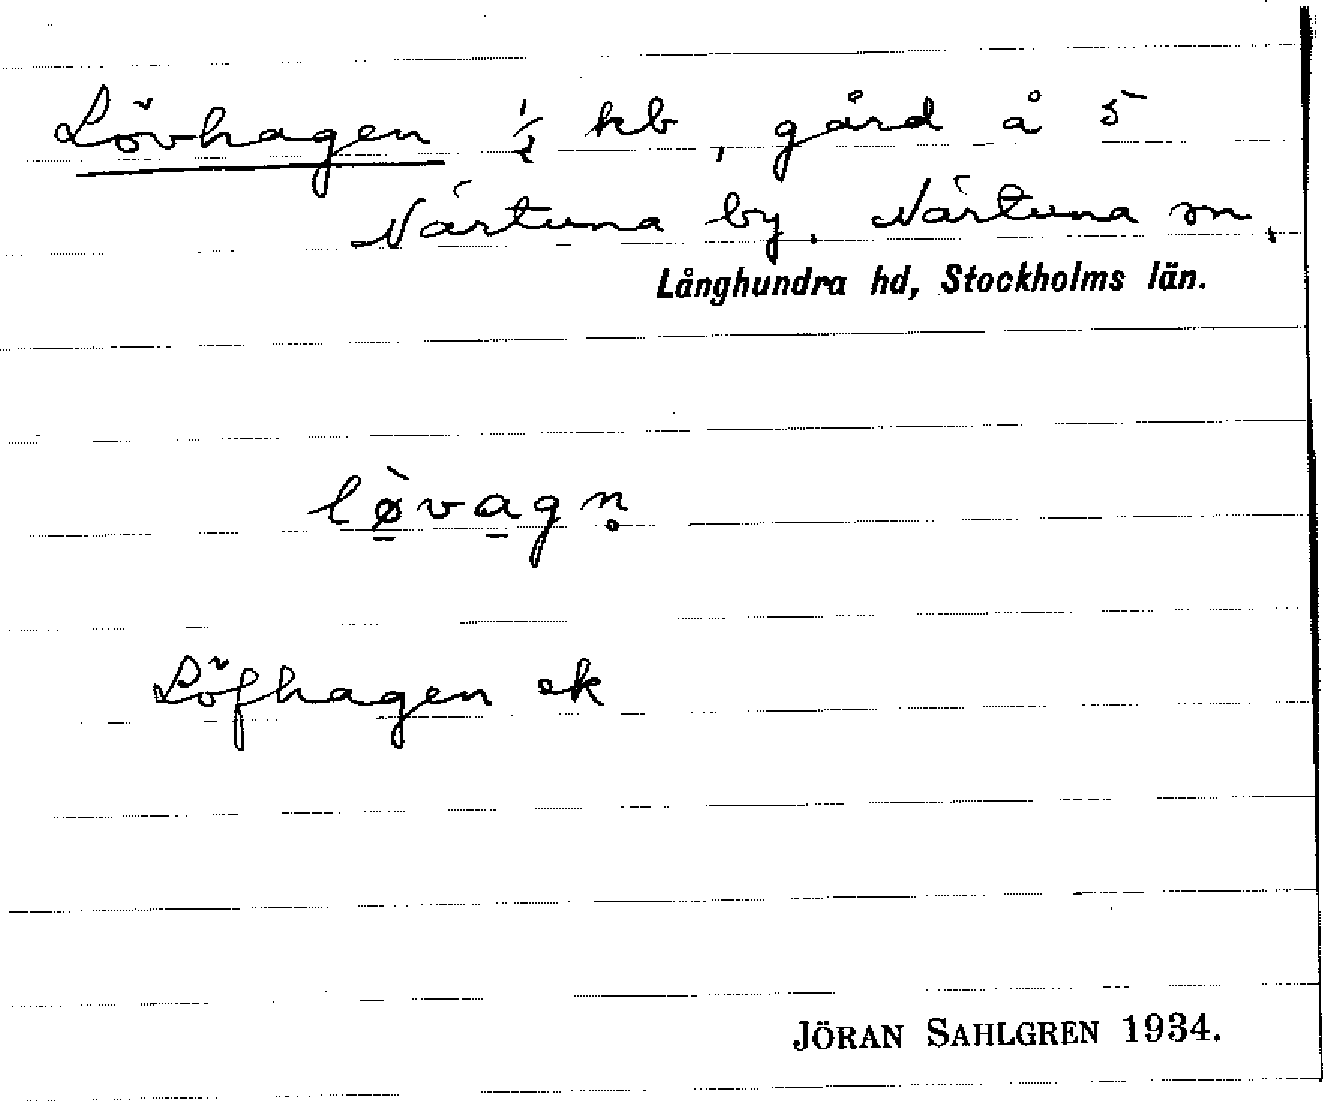 Lövhagen ½ kb, gård å 5
Närtuna by. Närtuna sn.
Långhundra hd, Stockholms län.
lø̱̀va̱gn̥
Löfhagen ek
JÖRAN SAHLGREN 1934.